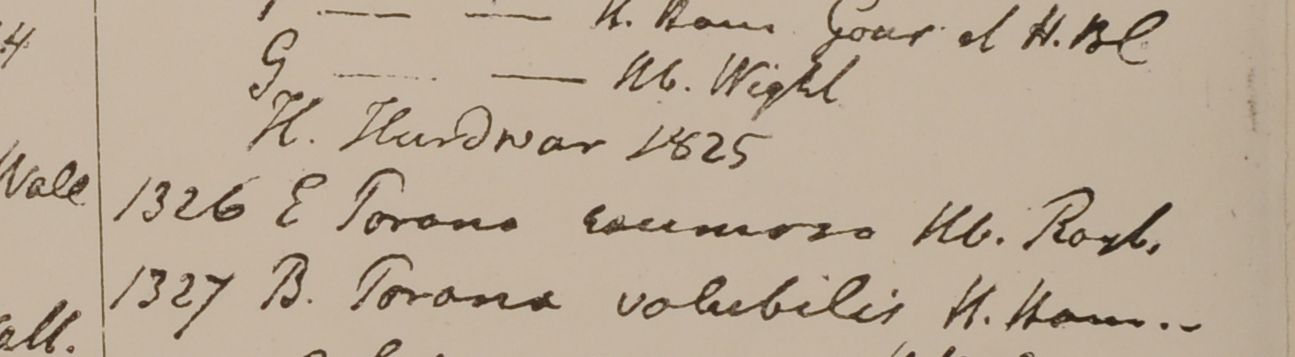 F — — H. Ham. Gour et H. BC
G — — Hb. Wight
H. Hurdwar 1825
Wall
1326 E Porana racemosa Hb. Roxb.
1327 B. Porana volubilis H. Ham..
all.